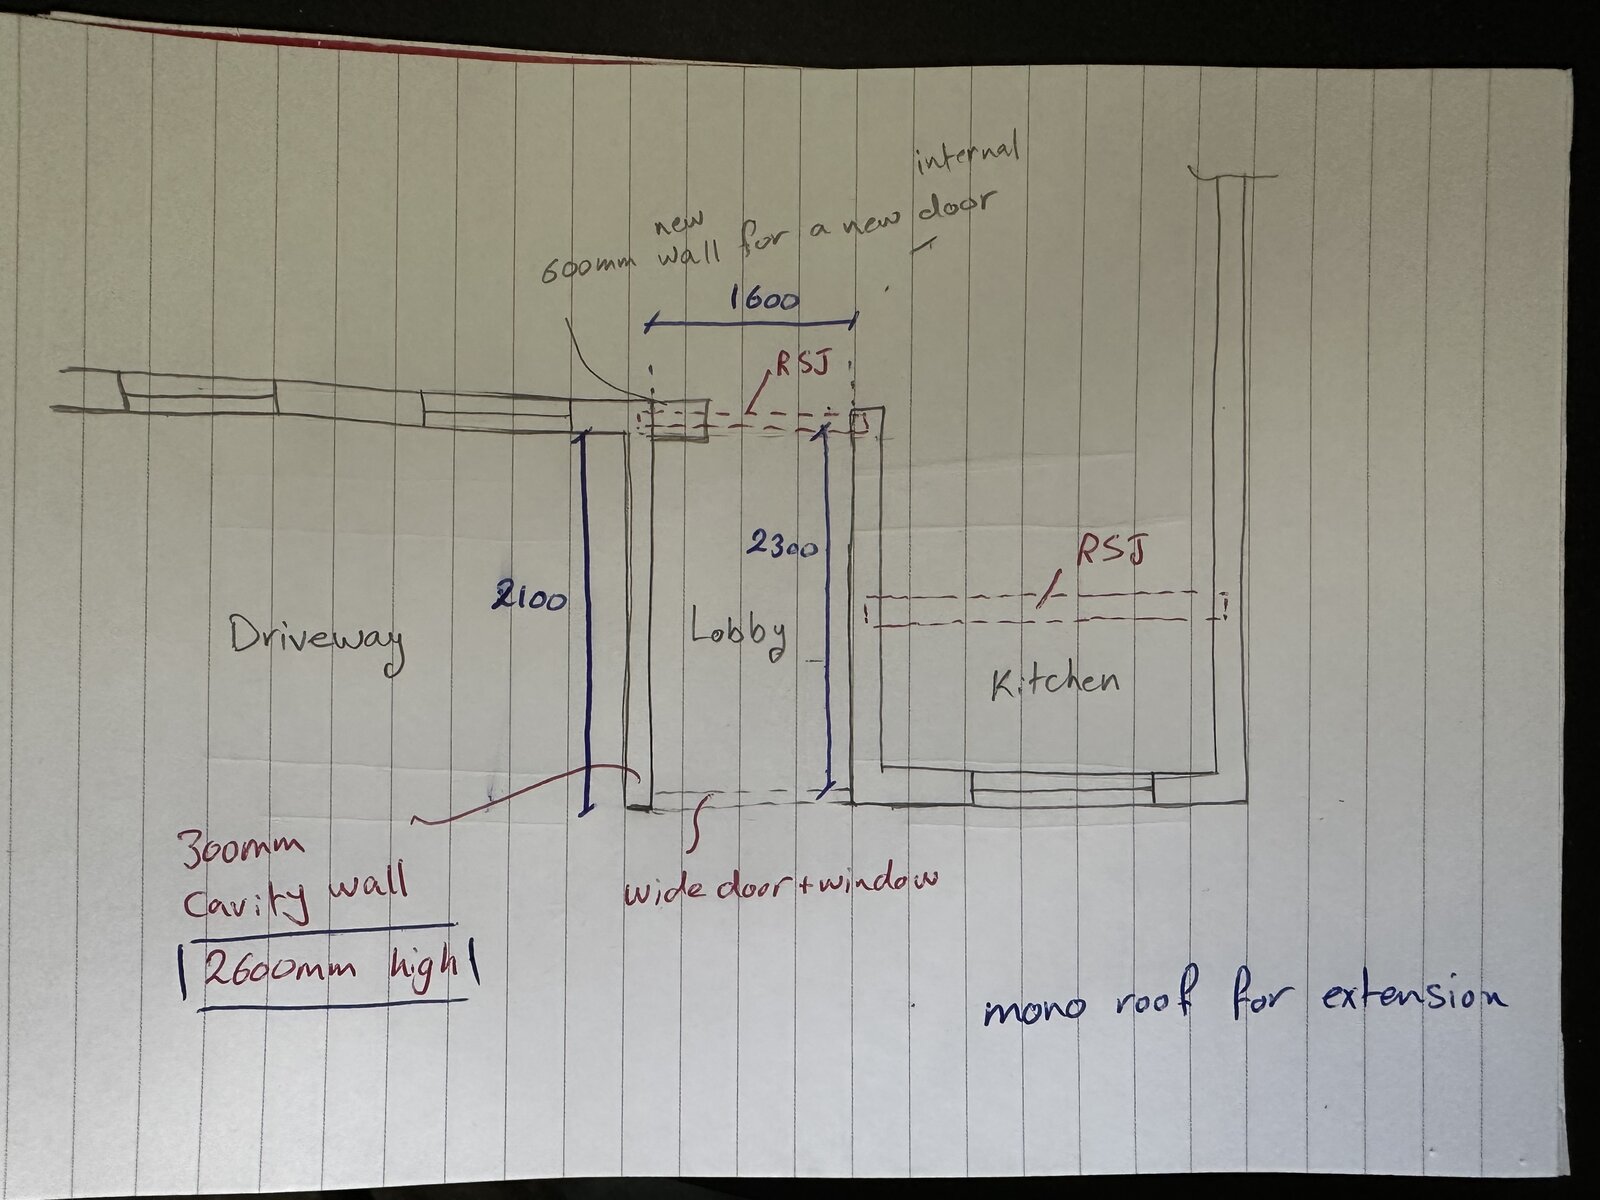 internal
new
600mm wall for a new door
1600
RSJ
2300
RSJ
2100
Driveway
Lobby
Kitchen
300mm
Cavity wall
2600mm high
wide door + window
mono roof for extension